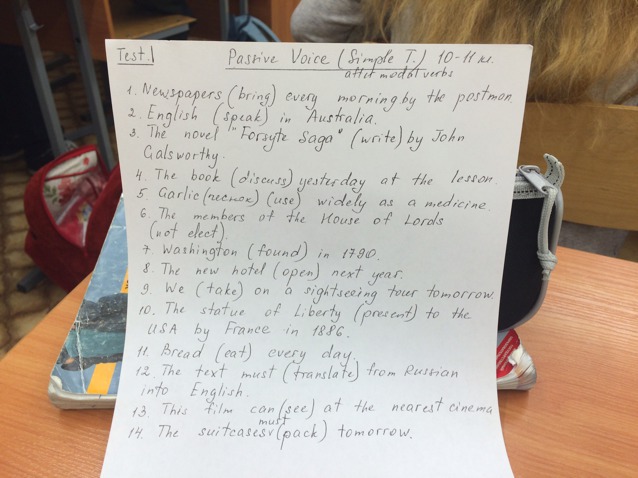 Test.1
Passive Voice (Simple T.) 10-11 кл.
after modal verbs
1. Newspapers (bring) every morning by the postman.
2. English (speak) in Australia.
3. The novel "Forsyte Saga" (write) by John
Galsworthy.
4. The book (discuss) yesterday at the lesson.
5. Garlic (чеснок) (use) widely as a medicine
6. The members of the House of Lords
(not elect).
7. Washington (found) in 1790.
8. The new hotel (open) next year.
9. We (take) on a sightseeing tour tomorrow.
10. The statue of Liberty (present) to the
USA by France in 1886.
11. Bread (eat) every day.
12. The text must (translate) from Russian
into English.
13. This film can (see) at the nearest cinema
must
14. The suitcases v (pack) tomorrow.